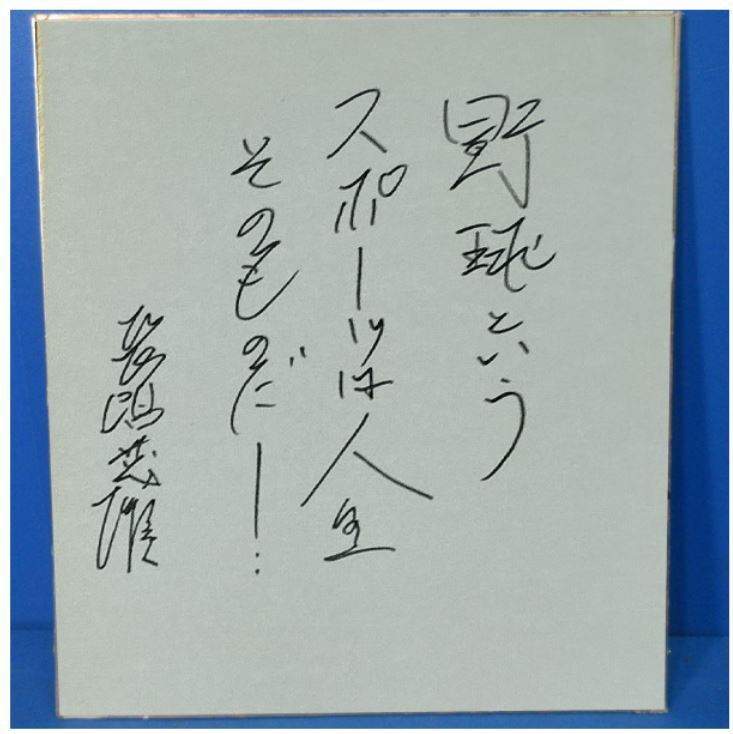 野球という
スポーツは人生
そのものだ!
長嶋茂雄